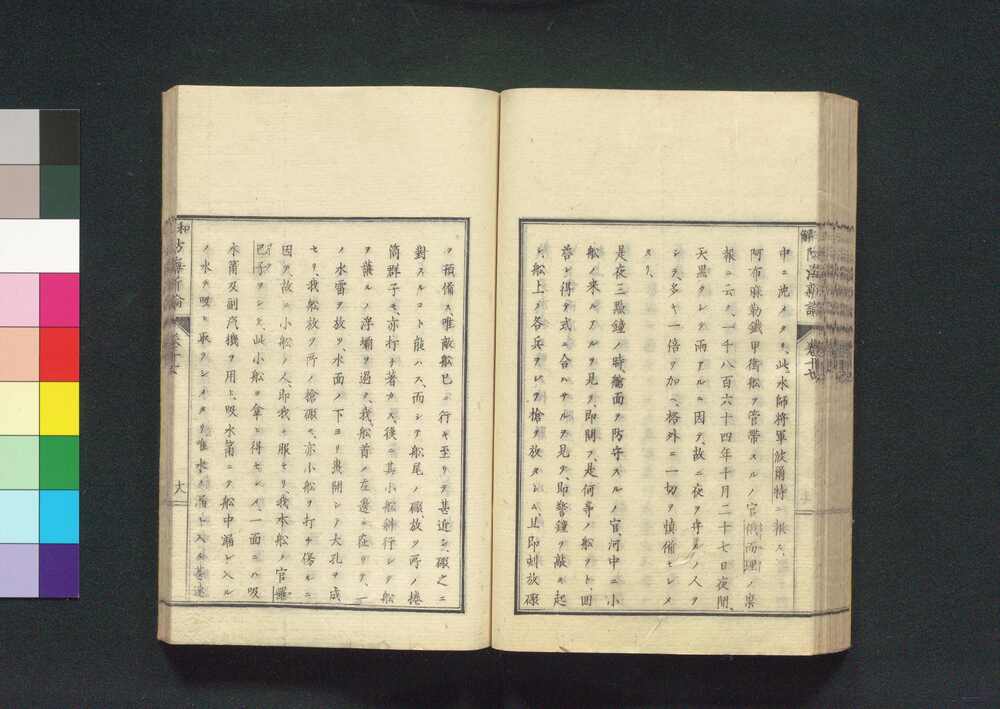 中ニ沈メタリ、此水師将軍波爾特ニ報ス、
阿布麻勒鐵甲衝船ヲ管帯スルノ官俱而理ノ禀
報ニ云ク、一千八百六十四年十月二十七日夜間、
天黒クシテ雨アルニ因テ、故ニ夜ヲ守ルノ人ヲ
シテ、多ヤ一倍ヲ加ヘ、格外ニ一切ヲ慎備セシメ
タリ、
是夜三點鐘ノ時、艙面ヲ防守スルノ官、河中ニ小
船ノ来ルアルヲ見テ、即問フ、是何等ノ船ソト、回
答シ得テ式ニ合ハサルヲ見テ、即警鐘ヲ敲キ起
シ、船上ノ各兵ヲシテ槍ヲ放タシム、且即刻放礮
ヲ預備ス、唯敵船巳ニ行キ至リテ甚近シ、礮之ニ
對スルコト能ハス、而シテ船尾ノ礮、放ツ所ノ捲
筒群子モ、亦行キ著カス、後ニ其小船斜行シテ船
ヲ護ルノ浮
ノ水雷ヲ放ツ、水面ノ下ヨリ轟開シテ大孔ヲ成
セリ、我船放ツ所ノ槍礮モ、亦小船ヲ打チ傷ルニ
因テ、故ニ小船ノ人、即我ニ服セリ、我本船ノ官羅
巴子ヲシテ、此小船ヲ拿ヒ得セシメ、一面ニハ吸
水筩及副汽機ヲ用ヒ、吸水筩ニテ船中漏レ入ル
ノ水ヲ吸ヒ取ラシメタリ、唯水ノ漏レ入ル甚速